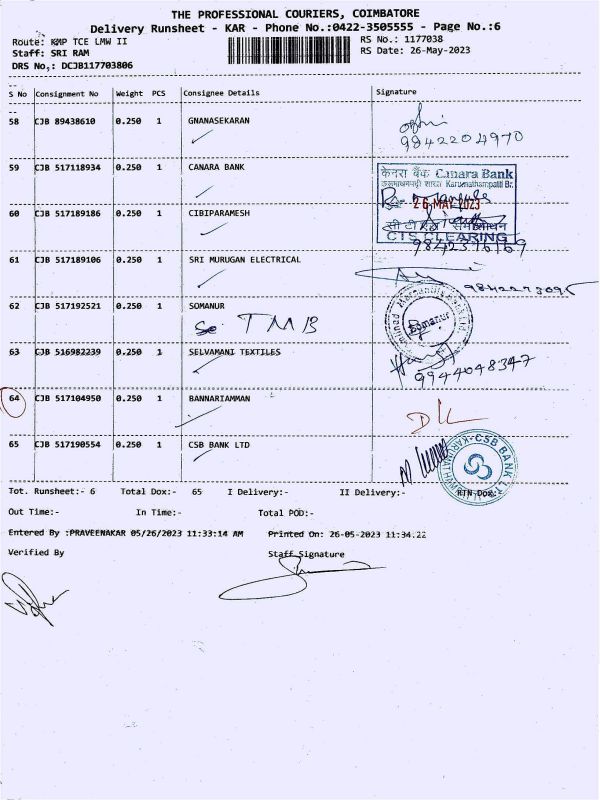 THE PROFESSIONAL COURIERS, COIMBATORE
Delivery Runsheet - KAR - Phone No.:0422-3505555 - Page No.:6
Route: KMP TCE LMW II
RS No.: 1177038
Staff: SRI RAM
RS Date: 26-May-2023
DRS No,: DCJB117703806
S No Consignment No Weight PCS Consignee Details Signature
58 CJB 89438610 0.250 1 GNANASEKARAN
9842204970
59 CJB 517118934 0.250 1 CANARA BANK
केनरा बैंक Canara Bank
Karumathampatti Br.
26 MAY 2023
CTS CLEARING
60 CJB 517189186 0.250 1 CIBIPARAMESH
61 CJB 517189106 0.250 1 SRI MURUGAN ELECTRICAL
62 CJB 517192521 0.250 1 SOMANUR
TMB
Somanur
63 CJB 516982239 0.250 1 SELVAMANI TEXTILES
9944048347
64 CJB 517104950 0.250 1 BANNARIAMMAN
65 CJB 517190554 0.250 1 CSB BANK LTD
CSB BANK
Tot. Runsheet:- 6 Total Dox:- 65 I Delivery:- II Delivery:- RTN Dox:-
Out Time:- In Time:- Total POD:-
Entered By :PRAVEENAKAR 05/26/2023 11:33:14 AM Printed On: 26-05-2023 11:34.22
Verified By Staff Signature